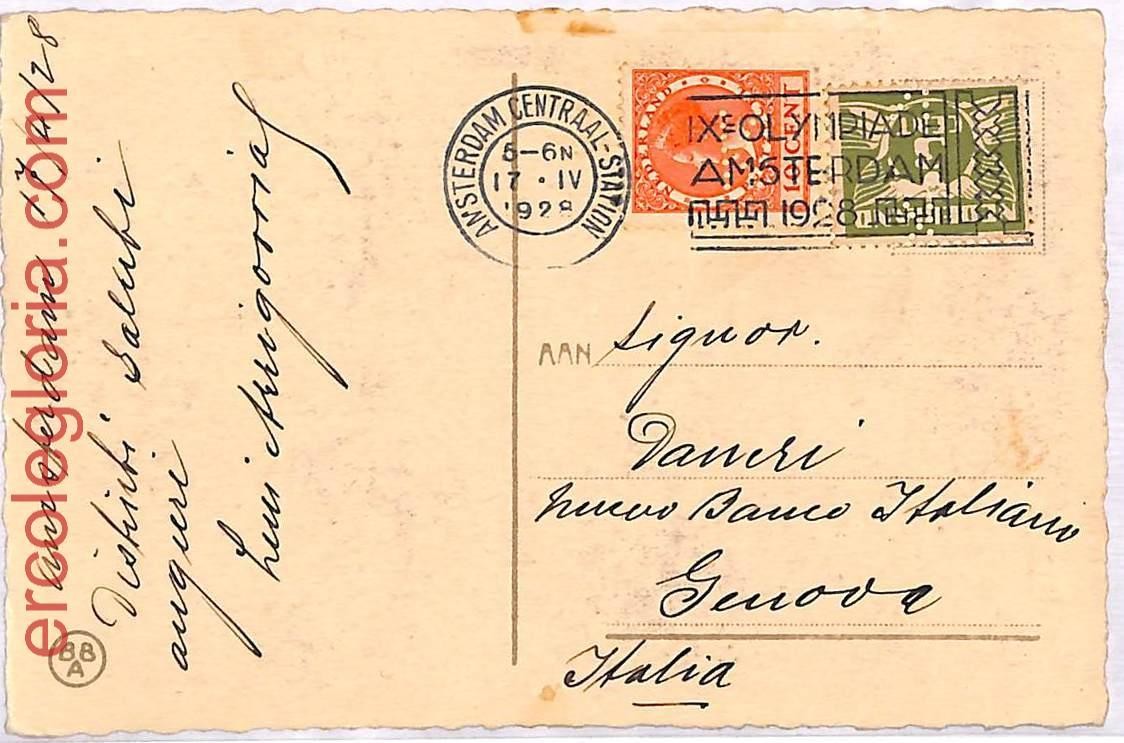 ercologloria.com
Amsterdam 17/4/28
Distinti saluti
auguri
BB
A
AMSTERDAM CENTRAAL-STATION
5-6N
17 · IV
1928
NEDERLAND
10 CENT
IXE OLYMPIADE
AMSTERDAM
1928
AAN Signor.
Daneri
Nuovo Banco Italiano
Genova
Italia